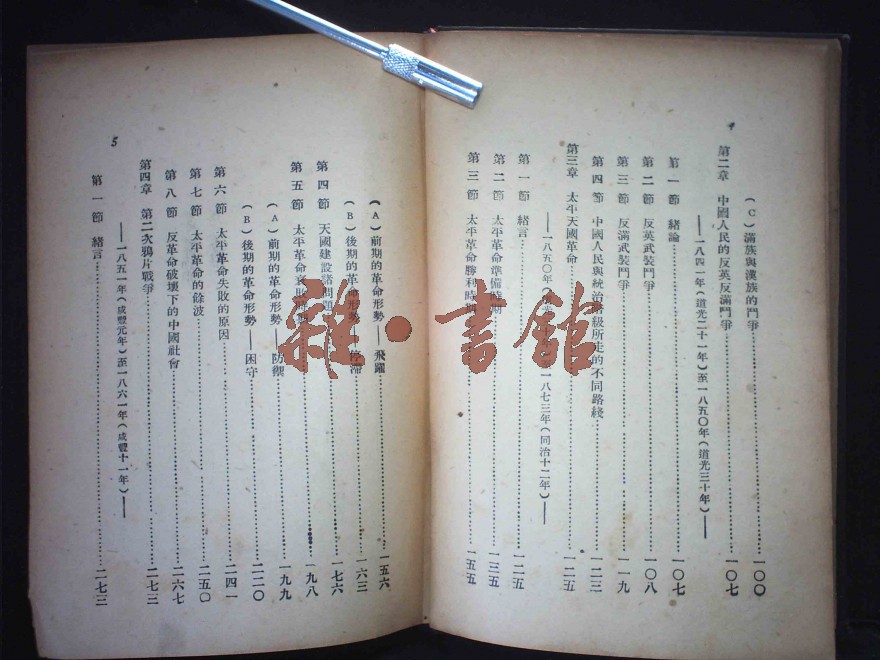 4
(C)滿族與漢族的鬥爭……一〇〇
第二章 中國人民的反英反滿鬥爭……一〇七
——一八四一年(道光二十一年)至一八五〇年(道光三十年)——
第一節 緒論……一〇七
第二節 反英武裝鬥爭……一〇八
第三節 反滿武裝鬥爭……一一九
第四節 中國人民與統治階級所走的不同路綫……一二三
第三章 太平天國革命……一二五
——一八五〇年(
一八七三年(同治十二年)——
第一節 緒言……一二五
第二節 太平革命準備時期……一三五
第三節 太平革命勝利時期……一五五
5
(A)前期的革命形勢——飛躍……一五六
(B)後期的革命形勢——停滯……一六三
第四節 天國建設諸問題……一七六
第五節 太平革命衰敗時期……一九八
(A)前期的革命形勢——防禦……一九九
(B)後期的革命形勢——困守……二二〇
第六節 太平革命失敗的原因……二四一
第七節 太平革命的餘波……二五〇
第八節 反革命破壞下的中國社會……二六七
第四章 第二次鴉片戰爭……二七三
——一八五一年(咸豐元年)至一八六一年(咸豐十一年)——
第一節 緒言……二七三
雜·書館